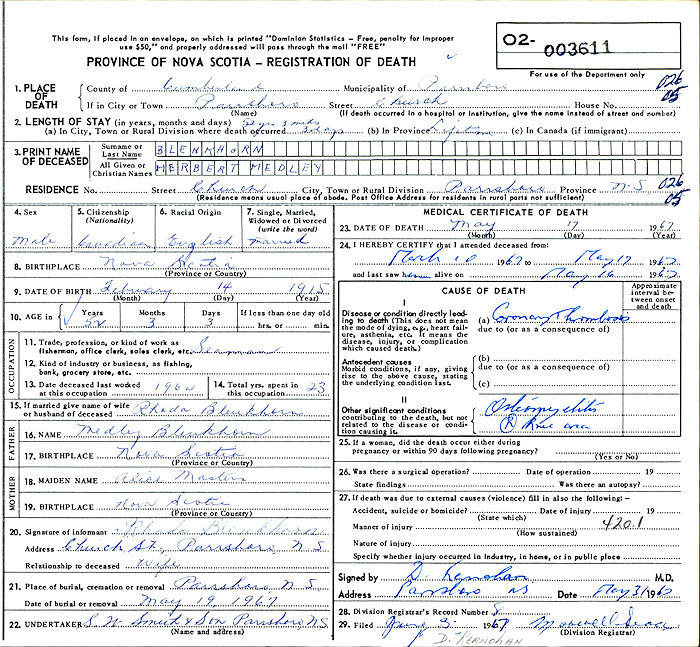 This form, if placed in an envelope, on which is printed "Dominion Statistics – Free, penalty for improper
use $50," and properly addressed will pass through the mail "FREE"
PROVINCE OF NOVA SCOTIA – REGISTRATION OF DEATH
O2- 003611
For use of the Department only
1. PLACE OF DEATH
County of Cumberland Municipality of Parrsboro 026
If in City or Town Parrsboro Street Church House No. 05
(Name) (If death occurred in a hospital or institution, give the name instead of street and number)
2. LENGTH OF STAY (in years, months and days) 52 yrs 3 mths
(a) In City, Town or Rural Division where death occurred 3 days (b) In Province Lifetime (c) In Canada (if immigrant)
3. PRINT NAME OF DECEASED
Surname or Last Name BLENKHORN
All Given or Christian Names HERBERT MEDLEY
RESIDENCE No. Street Church City, Town or Rural Division Parrsboro Province N.S. 026
(Residence means usual place of abode. Post Office Address for residents in rural parts not sufficient) 05
4. Sex 5. Citizenship (Nationality) 6. Racial Origin 7. Single, Married, Widowed or Divorced (write the word)
Male Canadian English Married
8. BIRTHPLACE Nova Scotia
(Province or Country)
9. DATE OF BIRTH February 14 1915
(Month) (Day) (Year)
10. AGE in Years Months Days If less than one day old
52 3 3 hrs. or min.
OCCUPATION
11. Trade, profession, or kind of work as
fisherman, office clerk, sales clerk, etc. Seaman
12. Kind of industry or business, as fishing,
bank, grocery store, etc.
13. Date deceased last worked at this occupation 14. Total yrs. spent in this occupation 23
15. If married give name of wife or husband of deceased Rhoda Blenkhorn
FATHER
16. NAME Medley Blenkhorn
17. BIRTHPLACE Nova Scotia
(Province or Country)
MOTHER
18. MAIDEN NAME Alice Masters
19. BIRTHPLACE Nova Scotia
(Province or Country)
20. Signature of informant Rhoda Blenkhorn
Address Church St., Parrsboro, N S
Relationship to deceased Wife
21. Place of burial, cremation or removal Parrsboro, N S
Date of burial or removal May 19, 1967
22. UNDERTAKER S. W. Smith & Son Parrsboro, N.S.
(Name and address)
MEDICAL CERTIFICATE OF DEATH
23. DATE OF DEATH May 17 1967
(Month) (Day) (Year)
24. I HEREBY CERTIFY that I attended deceased from:
March 10 1967 to May 17 1967
and last saw h alive on May 16 1967
CAUSE OF DEATH
Approximate interval between onset and death
I
Disease or condition directly leading to death (This does not mean the mode of dying, e.g., heart failure, asthenia, etc. It means the disease, injury, or complication which caused death.)
(a) Coronary Thrombosis
due to (or as a consequence of)
Antecedent causes
Morbid conditions, if any, giving rise to the above cause, stating the underlying condition last.
(b)
due to (or as a consequence of)
(c)
II
Other significant conditions contributing to the death, but not related to the disease or condition causing it.
Osteomyelitis
(R) Knee area
25. If a woman, did the death occur either during
pregnancy or within 90 days following pregnancy?
(Yes or No)
26. Was there a surgical operation? Date of operation 19
State findings Was there an autopsy?
27. If death was due to external causes (violence) fill in also the following –
Accident, suicide or homicide? Date of injury 19
(State which)
Manner of injury 420.1
(How sustained)
Nature of injury
Specify whether injury occurred in industry, in home, or in public place
Signed by D. Kernohan M.D.
Address Parrsboro NS Date May 31 1967
28. Division Registrar's Record Number 8
29. Filed June 3 1967 Maxwell
(Division Registrar)
D. KERNOHAN